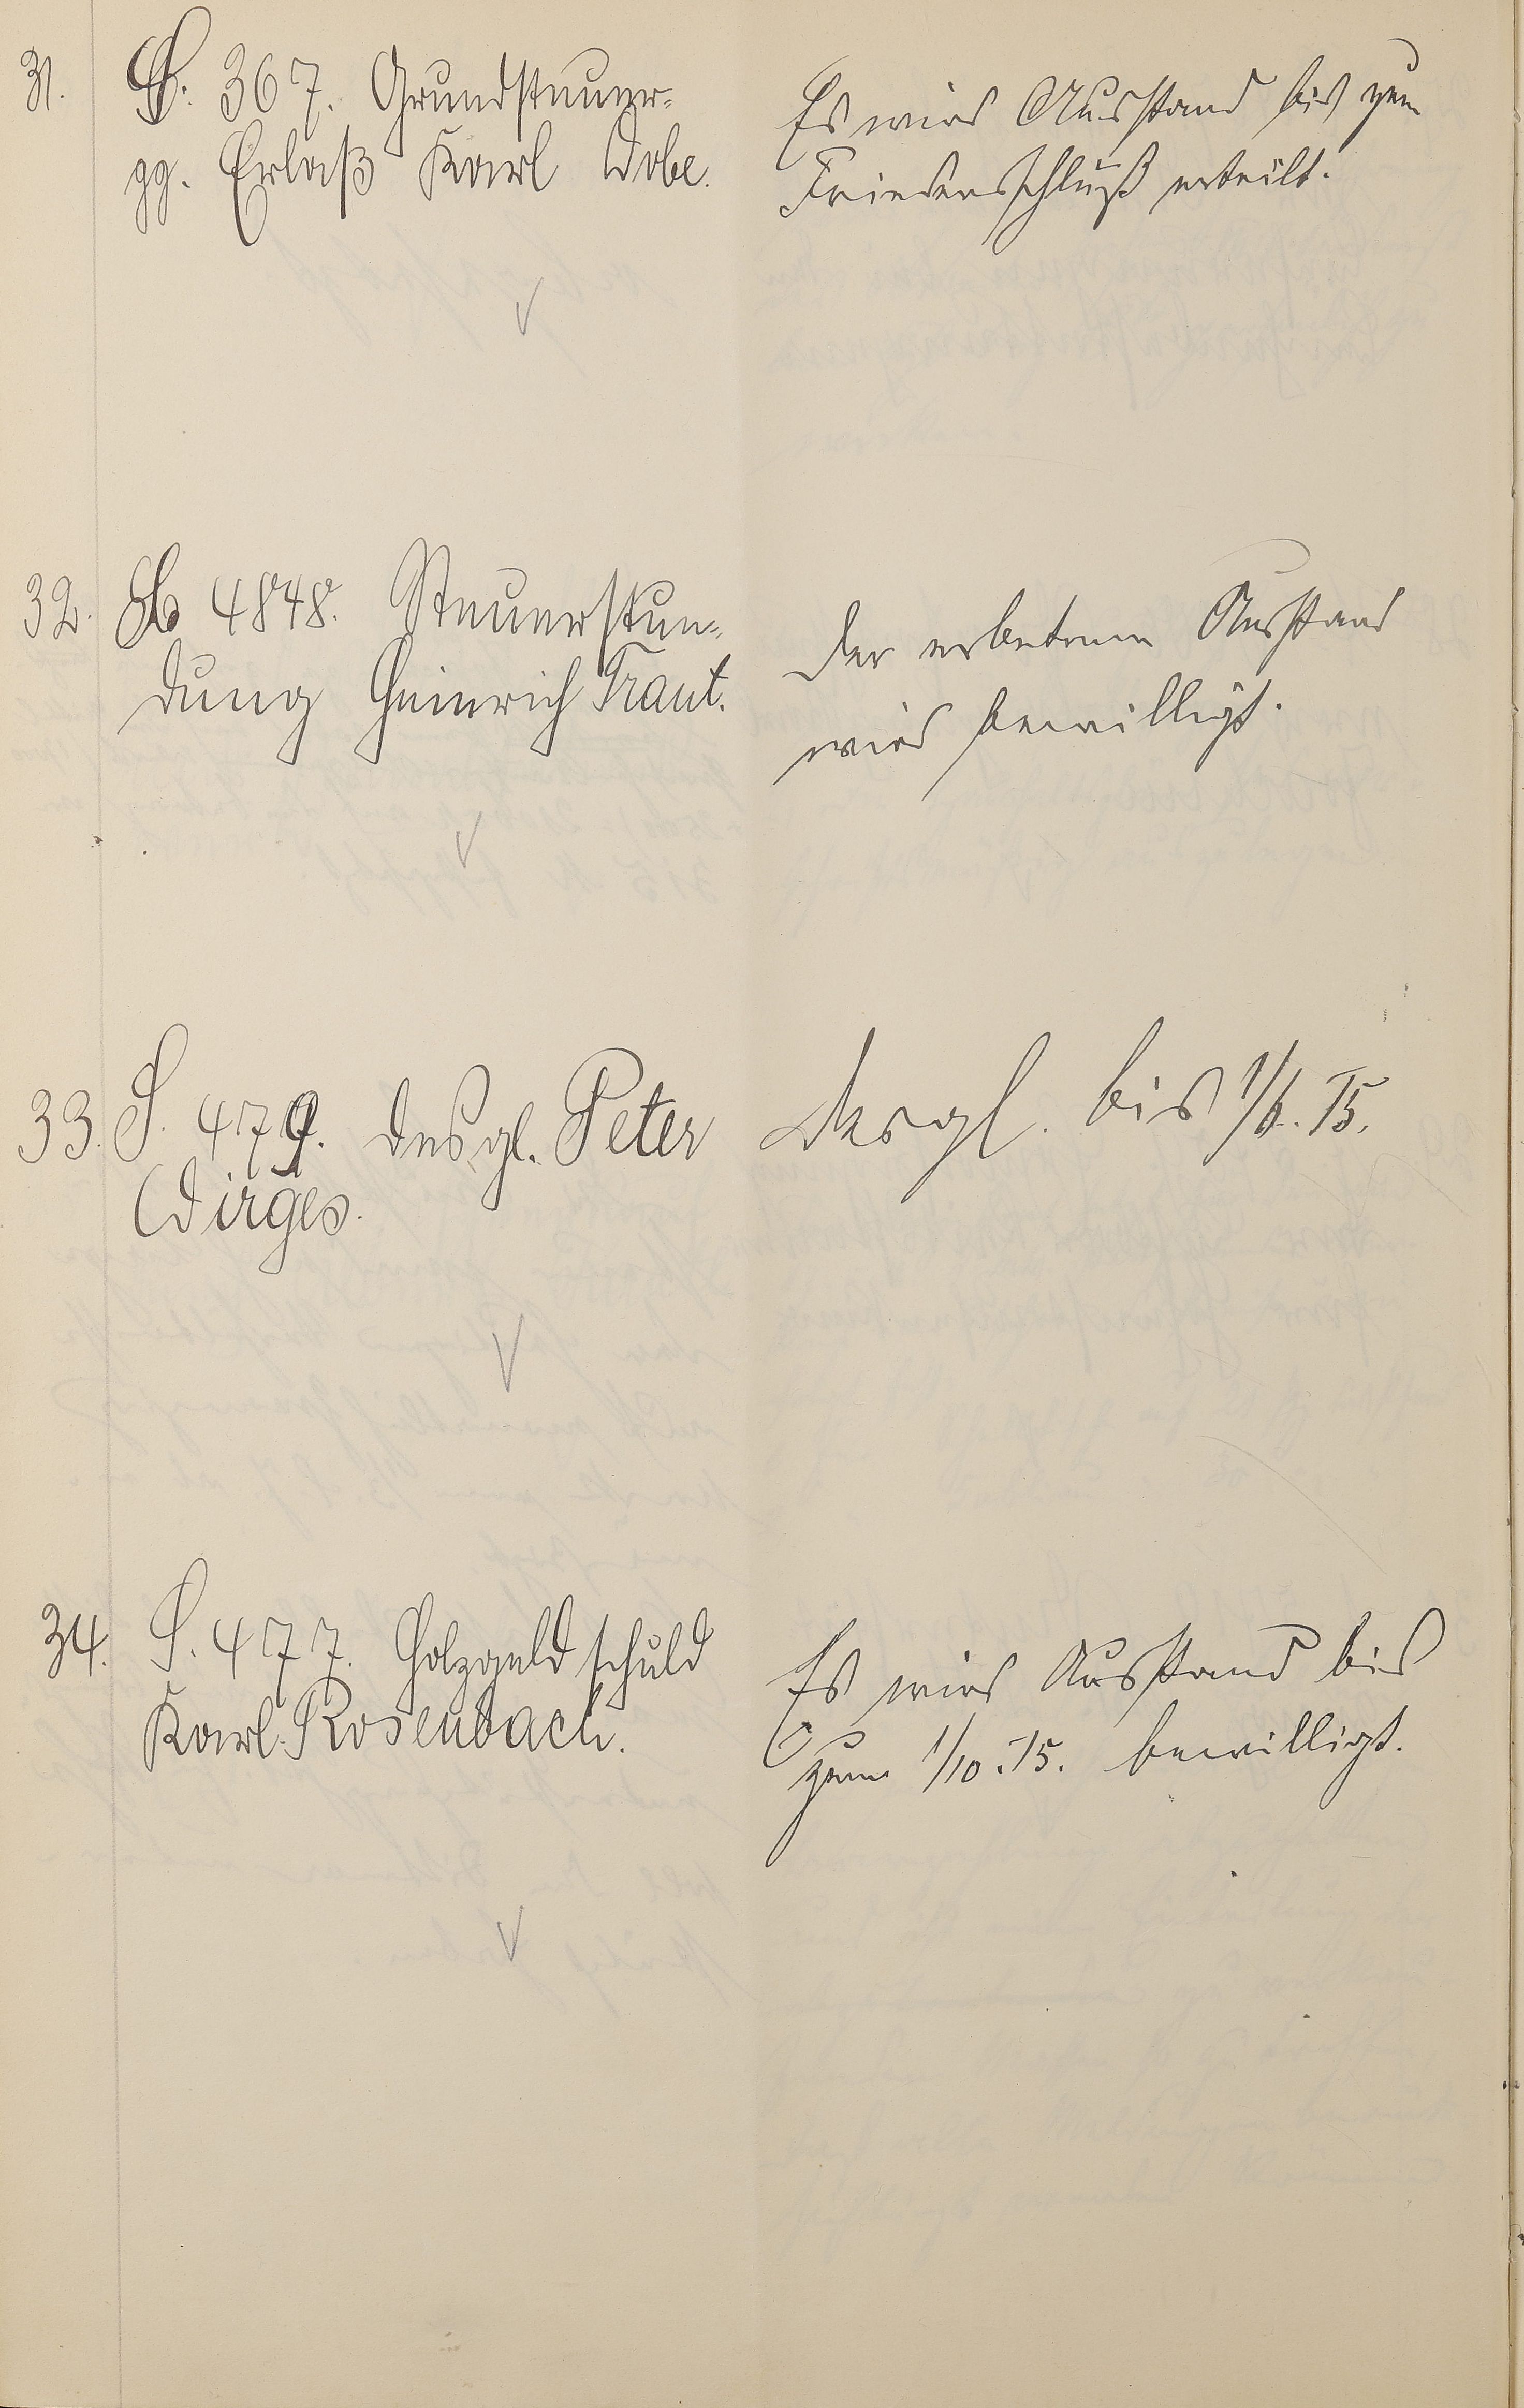 31. S. 367. Grundsteuer-
gg. Erlaß Karl Dobe.
Es wird Ausstand bis zum
Friedensschluß erteilt.
32. St 4848. Steuerstun-
dung Heinrich Traut.
Der erbetene Ausstand
wird bewilligt.
33. S. 479. desgl. Peter
Dirges.
desgl. bis 1/6. 15.
34. S. 477. Holzgeldschuld
Karl Rosenbach.
Es wird Ausstand bis
zum 1/10. 15. bewilligt.